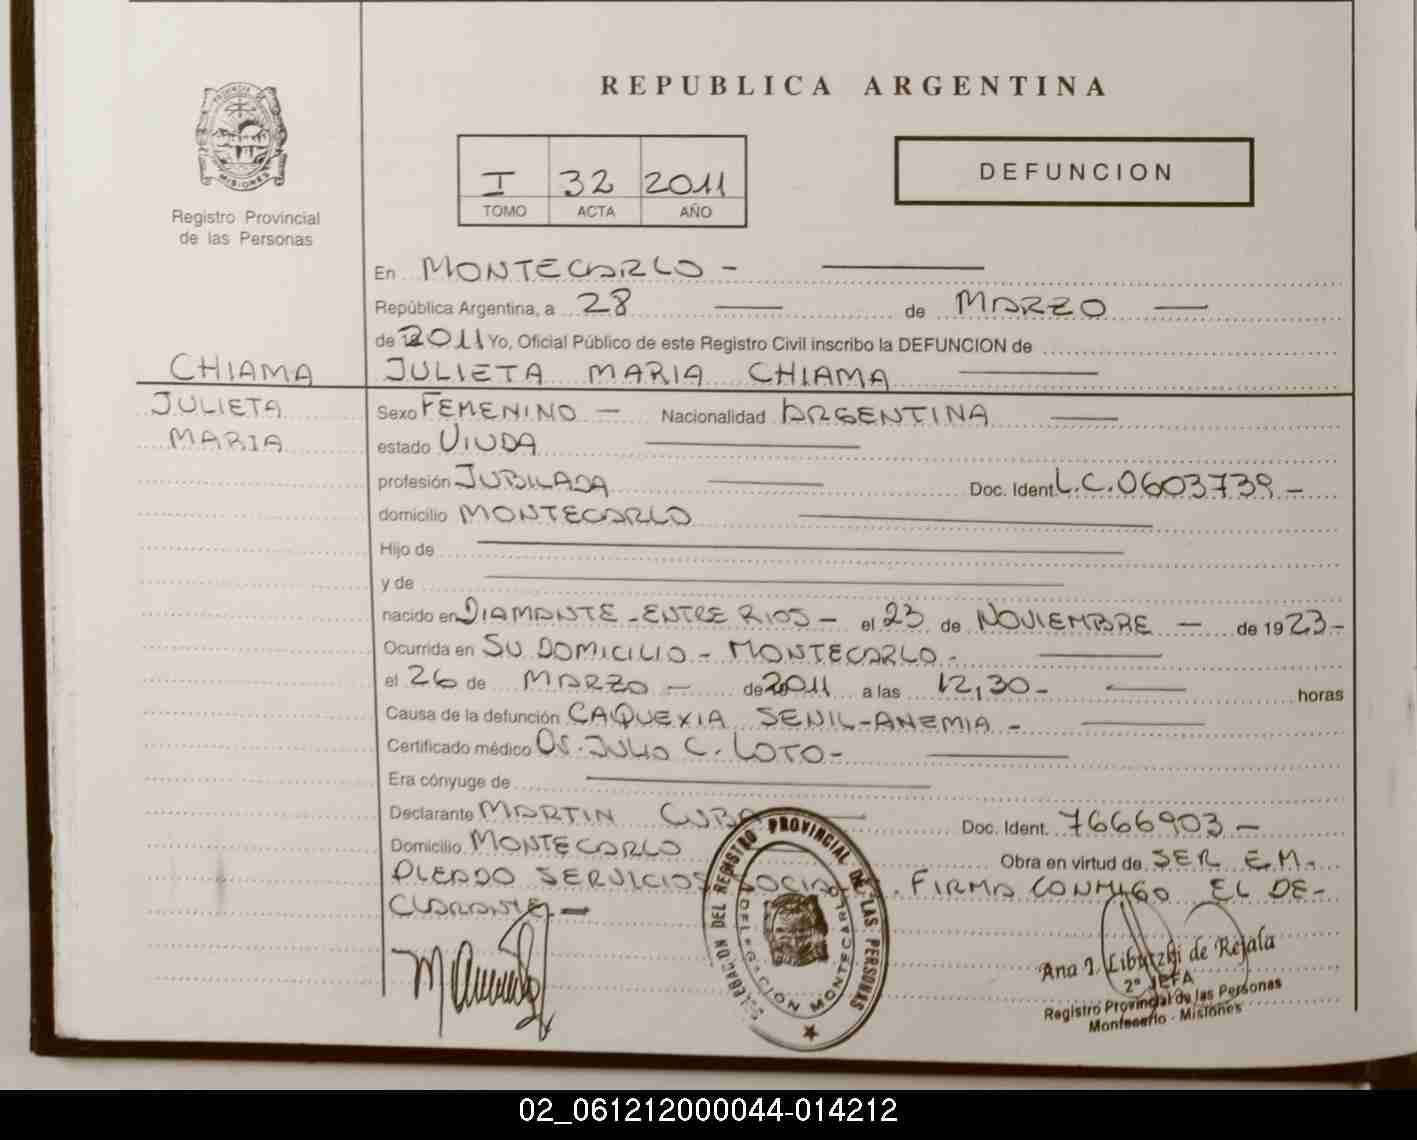 REPUBLICA ARGENTINA
PROVINCIA DE MISIONES
Registro Provincial
de las Personas
I 32 2011
TOMO ACTA AÑO
DEFUNCION
En MONTECARLO -
República Argentina, a 28 de MARZO
de 2011 Yo, Oficial Público de este Registro Civil inscribo la DEFUNCION de
CHIAMA JULIETA MARIA CHIAMA
JULIETA Sexo FEMENINO - Nacionalidad ARGENTINA
MARIA estado VIUDA
profesión JUBILADA Doc. Ident. L.C.0603739 -
domicilio MONTECARLO
Hijo de
y de
nacido en DIAMANTE - ENTRE RIOS - el 23 de NOVIEMBRE - de 1923 -
Ocurrida en SU DOMICILIO - MONTECARLO -
el 26 de MARZO - de 2011 a las 12,30 - horas
Causa de la defunción CAQUEXIA SENIL - ANEMIA -
Certificado médico Dr. JULIO C. LOTO -
Era cónyuge de
Declarante MARTIN CUBA Doc. Ident. 7666903 -
Domicilio MONTECARLO Obra en virtud de SER EM-
PLEADO SERVICIOS SOCIALES. FIRMA CONMIGO EL DE-
CLARANTE -
DEL REGISTRO PROVINCIAL DE LAS PERSONAS
DELEGACION MONTECARLO
Ana I. Libutzki de Rejala
2º JEFA
Registro Provincial de las Personas
Montecarlo - Misiones
02_061212000044-014212